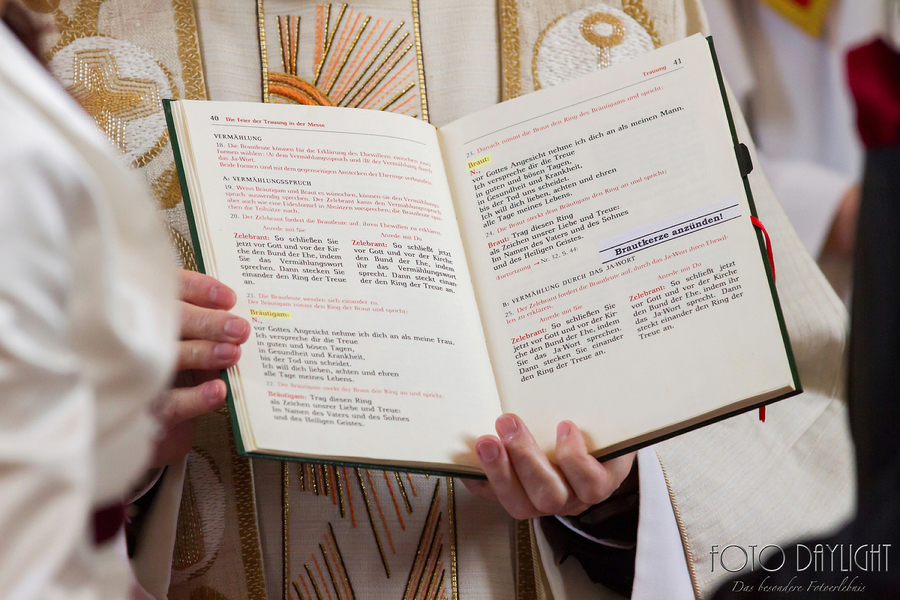 40 Die Feier der Trauung in der Messe
VERMÄHLUNG
18. Die Brautleute können für die Erklärung des Ehewillens zwischen zwei
Formen wählen: (A) dem Vermählungsspruch und (B) der Vermählung durch
das Ja-Wort.
Beide Formen sind mit dem gegenseitigen Anstecken der Eheringe verbunden.
A: VERMÄHLUNGSSPRUCH
19. Wenn Bräutigam und Braut es wünschen, können sie den Vermählungs-
spruch auswendig sprechen. Der Zelebrant kann den Vermählungsspruch
aber auch wie eine Eidesformel in Absätzen vorsprechen; die Brautleute spre-
chen die Teilsätze nach.
20. Der Zelebrant fordert die Brautleute auf, ihren Ehewillen zu erklären.
Anrede mit Sie
Zelebrant: So schließen Sie
jetzt vor Gott und vor der Kir-
che den Bund der Ehe, indem
Sie das Vermählungswort
sprechen. Dann stecken Sie
einander den Ring der Treue
an.
Anrede mit Du
Zelebrant: So schließt jetzt
vor Gott und vor der Kirche
den Bund der Ehe, indem
ihr das Vermählungswort
sprecht. Dann steckt einan-
der den Ring der Treue an.
21. Die Brautleute wenden sich einander zu.
Der Bräutigam nimmt den Ring der Braut und spricht:
Bräutigam:
N.,
vor Gottes Angesicht nehme ich dich an als meine Frau.
Ich verspreche dir die Treue
in guten und bösen Tagen,
in Gesundheit und Krankheit,
bis der Tod uns scheidet.
Ich will dich lieben, achten und ehren
alle Tage meines Lebens.
22. Der Bräutigam steckt der Braut den Ring an und spricht:
Bräutigam: Trag diesen Ring
als Zeichen unsrer Liebe und Treue:
Im Namen des Vaters und des Sohnes
und des Heiligen Geistes.
Trauung 41
23. Danach nimmt die Braut den Ring des Bräutigams und spricht:
Braut:
N.,
vor Gottes Angesicht nehme ich dich an als meinen Mann.
Ich verspreche dir die Treue
in guten und bösen Tagen,
in Gesundheit und Krankheit,
bis der Tod uns scheidet.
Ich will dich lieben, achten und ehren
alle Tage meines Lebens.
24. Die Braut steckt dem Bräutigam den Ring an und spricht:
Braut: Trag diesen Ring
als Zeichen unsrer Liebe und Treue:
Im Namen des Vaters und des Sohnes
und des Heiligen Geistes.
Brautkerze anzünden!
Fortsetzung → Nr. 32, S. 44
B: VERMÄHLUNG DURCH DAS JA-WORT
25. Der Zelebrant fordert die Brautleute auf, durch das Ja-Wort ihren Ehewil-
len zu erklären.
Anrede mit Sie
Zelebrant: So schließen Sie
jetzt vor Gott und vor der Kir-
che den Bund der Ehe, indem
Sie das Ja-Wort sprechen.
Dann stecken Sie einander
den Ring der Treue an.
Anrede mit Du
Zelebrant: So schließt jetzt
vor Gott und vor der Kirche
den Bund der Ehe, indem
ihr das Ja-Wort sprecht. Dann
steckt einander den Ring der
Treue an.
FOTO DAYLIGHT
Das besondere Fotoerlebnis